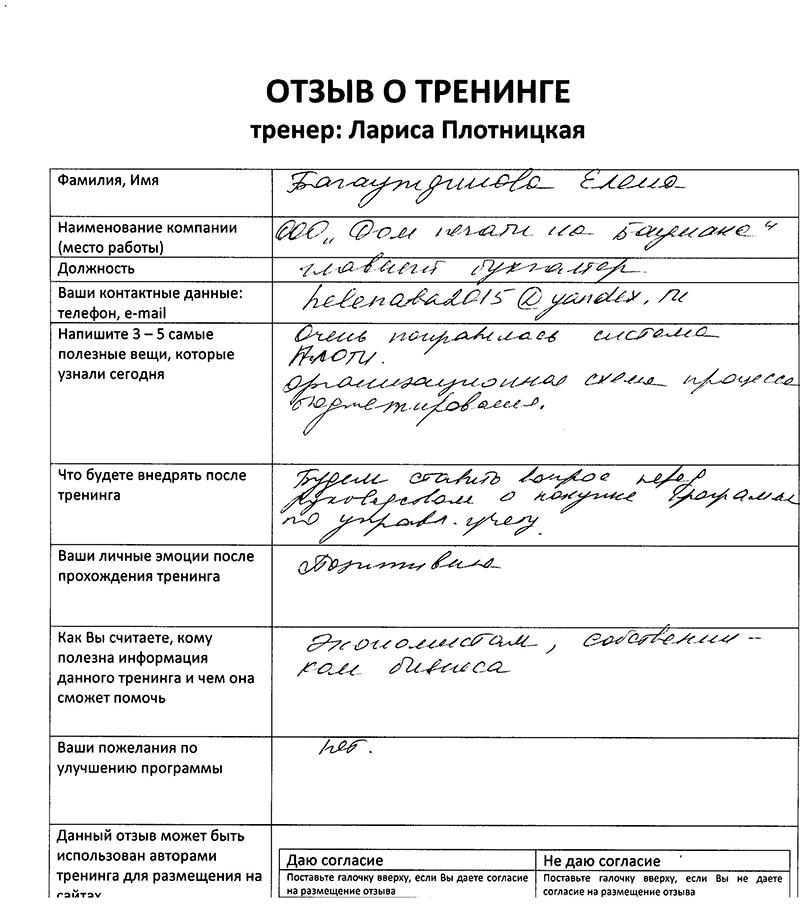 ОТЗЫВ О ТРЕНИНГЕ
тренер: Лариса Плотницкая
Фамилия, Имя
Багаутдинова Елена
Наименование компании
(место работы)
ООО „Дом печати на Баумана“
Должность
главный бухгалтер.
Ваши контактные данные:
телефон, e-mail
helenaba2015@yandex.ru
Напишите 3 – 5 самые
полезные вещи, которые
узнали сегодня
Очень понравилась система
организационная схема процесса
бюджетирования.
Что будете внедрять после
тренинга
Будем ставить вопрос перед
руководством о покупке программы
по управл. учету.
Ваши личные эмоции после
прохождения тренинга
Позитивно
Как Вы считаете, кому
полезна информация
данного тренинга и чем она
сможет помочь
Экономистам, собственни-
кам бизнеса
Ваши пожелания по
улучшению программы
нет.
Данный отзыв может быть
использован авторами
тренинга для размещения на
сайтах
Даю согласие
Не даю согласие
Поставьте галочку вверху, если Вы даете согласие
на размещение отзыва
Поставьте галочку вверху, если Вы не даете
согласие на размещение отзыва